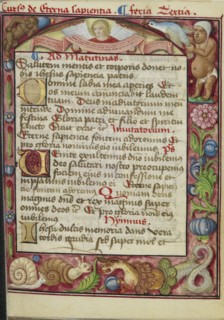 Cursus de Eterna sapientia. Feria Tertia.
Ad Matutinas.
Salutem mentis et corporis donet no-
bis Iesus sapientia patris.
Domine labia mea aperies Et
os meum annunciabit laudem
tuam Deus in adiutorium meum
intende Domine ad adiuvandum me
festina Gloria patri et filio et spiritui
sancto Sicut erat Invitatorium.
Eterne sapientie fontem adoremus Et
pro gloria nominis eius iubilemus
Venite exultemus domino iubilemus
deo salutari nostro preoccupemus
faciem eius in confessione et
in psalmis iubilemus ei Eterne sapien-
Quoniam deus
magnus dominus et rex magnus super
omnes deos Et pro gloria nominis eius
iubilemus Hymnus.
Iesu dulcis memoria dans vera
cordis gaudia sed super mel et